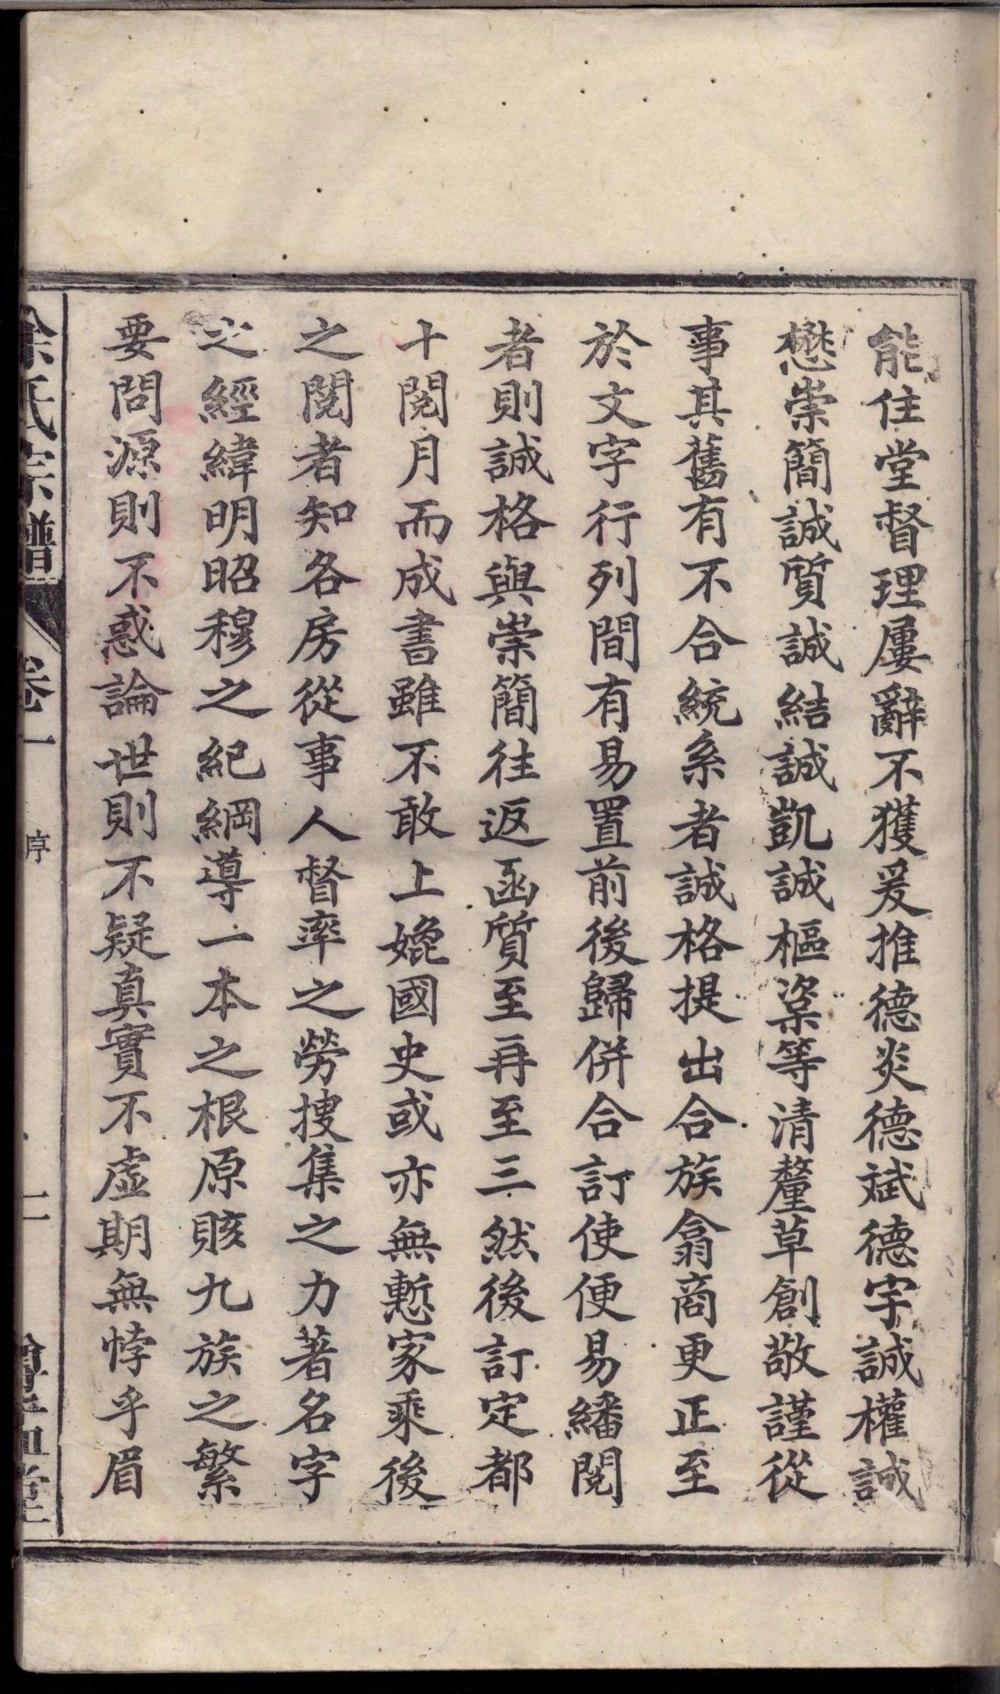 能住堂督理屢辭不獲爰推德炎德斌德宇誠權誠
懋崇簡誠質誠結誠凱誠樞粢等清釐草創敬謹從
事其舊有不合統系者誠格提出合族翕商更正至
於文字行列間有易置前後歸併合訂使便易繙閱
者則誠格與崇簡往返函質至再至三然後訂定都
十閱月而成書雖不敢上媲國史或亦無慙家乘後
之閱者知各房從事人督率之勞搜集之力著名字
之經緯明昭穆之紀綱導一本之根原賅九族之繁
要問源則不惑論世則不疑真實不虛期無悖乎眉
余氏宗譜 卷一 序 二